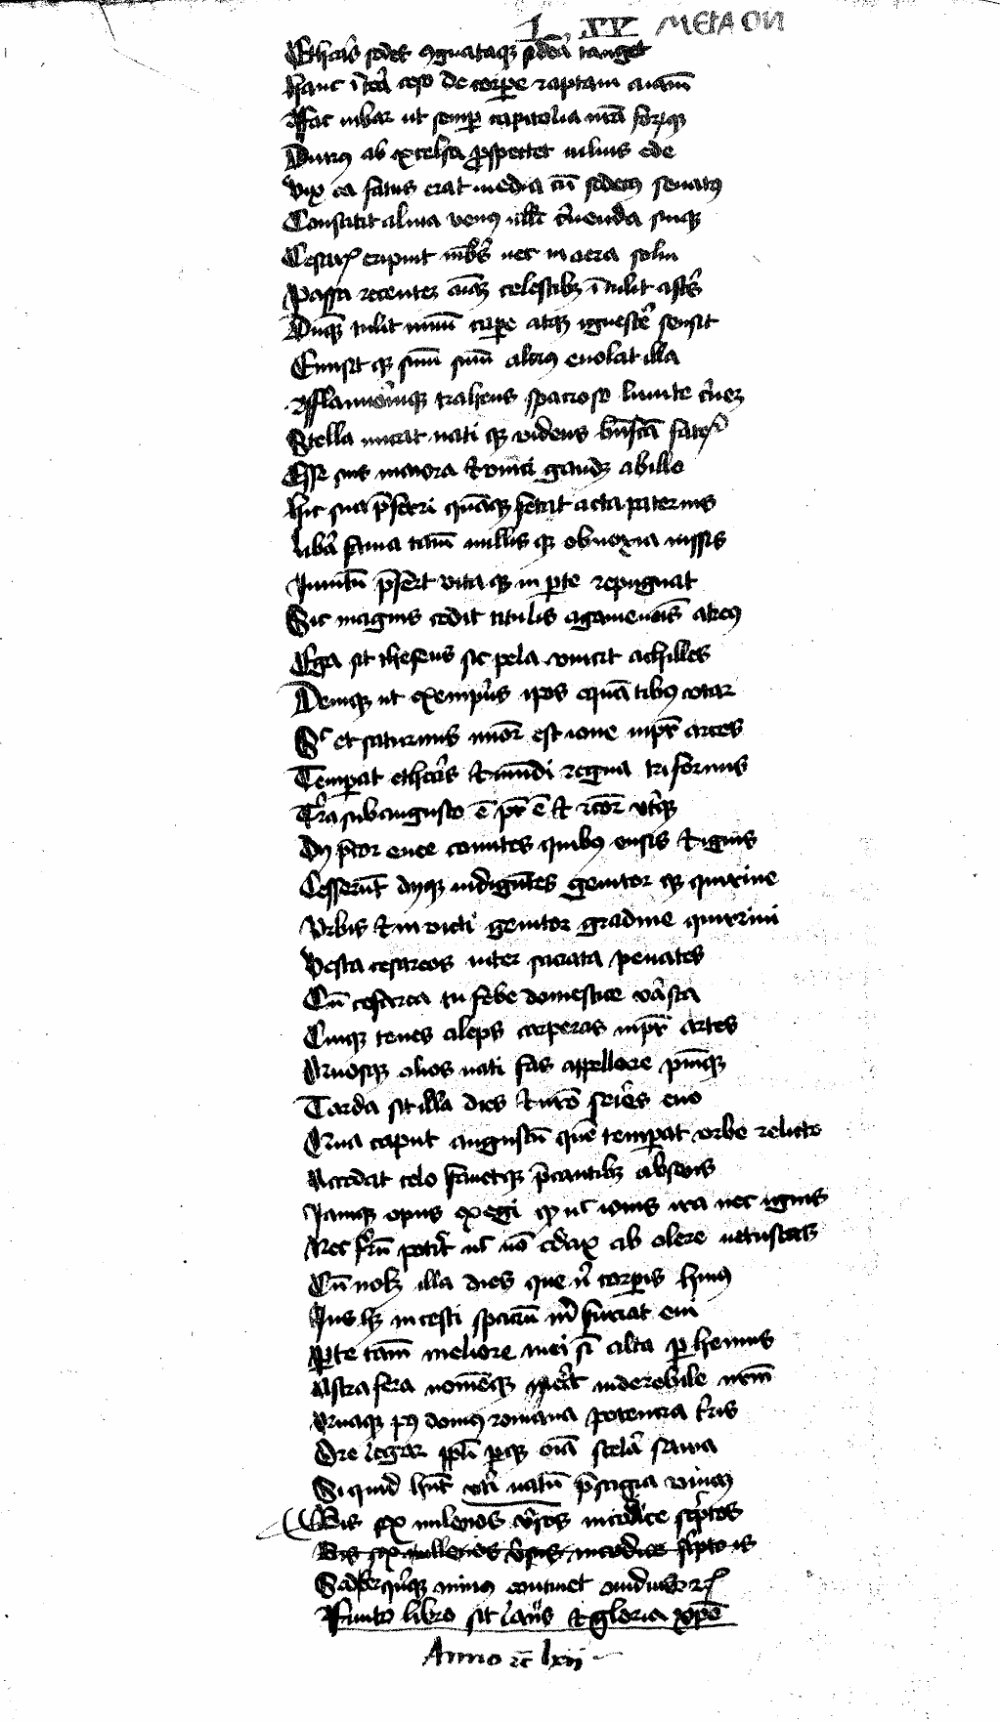 L. XV METAOVI
Etheris sedes cognataque sidera tanget
hanc interea ceso de corpore raptam animam
Fac iubar ut semper capitolia nostra forumque
Divus ab excelsa prospectet iulius ede
Vix ea fatus erat media cum sede senatus
Constitit alma venus nulli cernenda suique
Cesaris eripuit membris nec in aera solui
Passa recentem animam celestibus intulit astris
Dumque tulit lumen capere atque ignescere sensit
Emisitque sinu sinum altius evolat illa
Flammiferumque trahens spacioso limite crinem
Stella micat natique videns benefacta fatetur
Esse suis maiora et vinci gaudet ab illo
Hic sua preferri quamquam vetat acta paternis
Libera fama tamen nullisque obnoxia iussis
Invitum prefert unaque in parte repugnat
Sic magnis cedit titulis agamenonis atreus
Egea sic theseus sic pelea vincit achilles
Denique ut exemplis ipsos equantibus utar
Sic et saturnus minor est iove iupiter arces
Temperat etheris et mundi regna triformis
Terra sub augusto est pater est et rector uterque
Dii precor enee comites quibus ensis et ignis
Cesserunt diique indigetes genitorque quirine
Urbis et invicti genitor gradive quirini
Vesta cesareos inter sacrata penates
Cum cesarea tu febe domestice vesta
Quique tenes
Quosque alios vati fas appellare piumque
Tarda sit illa dies et nostro serior evo
Qua caput augustum quem temperat orbe relicto
Accedat celo faveatque precantibus absens
Iamque opus exegi quod nec iovis ira nec ignis
Nec ferrum poterit nec edax abolere vetustas
Cum volet illa dies que nil corporis huius
Ius habet incerti spacium mihi finiat evi
Parte tamen meliore mei super alta perhennis
Astra ferar nomenque erit indelebile nostrum
Quaque patet domitis romana potencia terris
Ore legar populi perque omnia secula fama
Si quid habent veri vatum presagia vivam
Bis sex milenos versus in codice scriptos
Bis sex millenos versus in codice scriptos
Sed ter quinque minus continet ovidius
Finito libro sit laus et gloria christo
Anno lxii